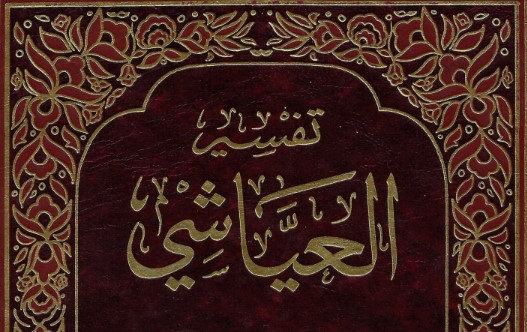 تفسير
العياشي